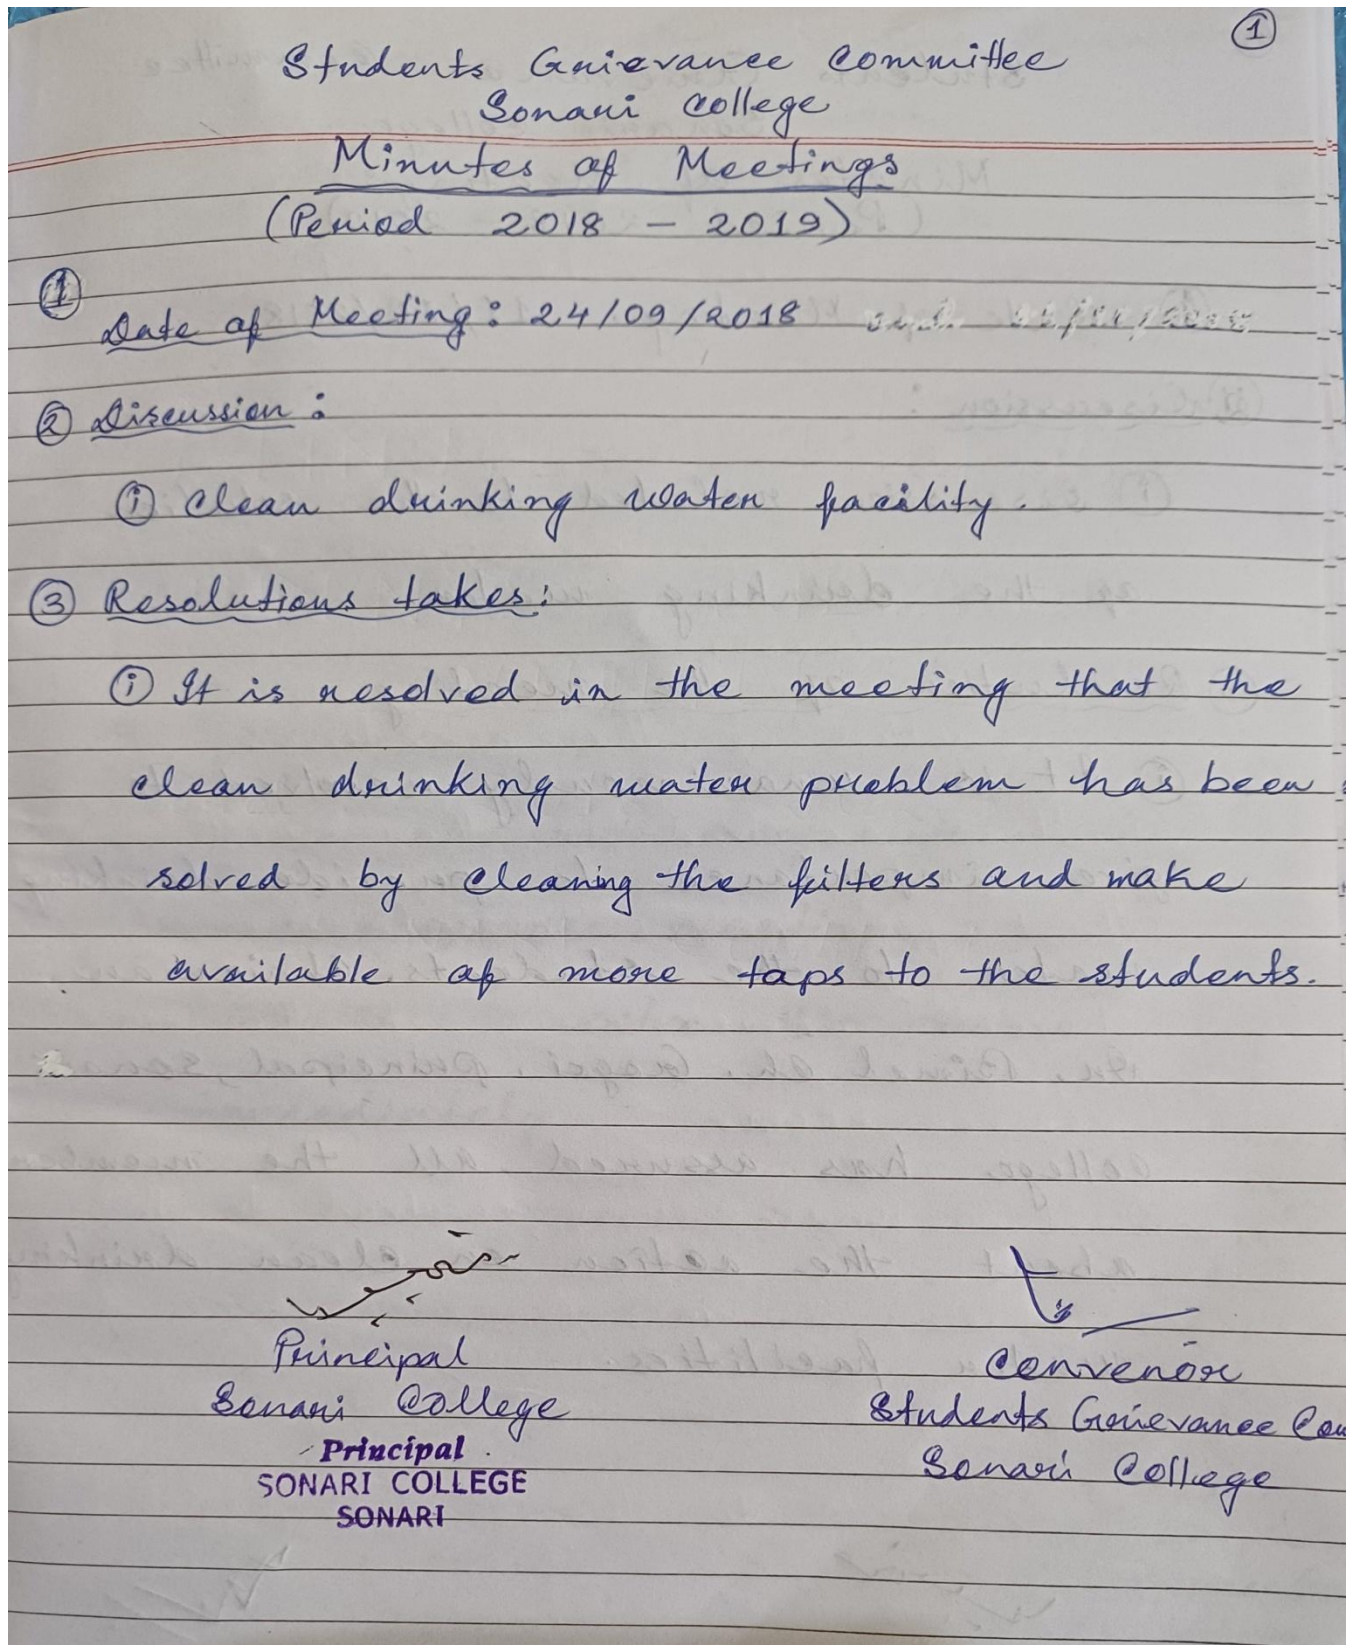 ①
Students Grievance Committee
Sonari College
Minutes of Meetings
(Period 2018 - 2019)
①
Date of Meeting: 24/09/2018
② Discussion:
ⓘ Clean drinking water facility.
③ Resolutions takes:
ⓘ It is resolved in the meeting that the
clean drinking water problem has been
solved by cleaning the filters and make
available of more taps to the students.
Principal
Sonari College
Principal
SONARI COLLEGE
SONARI
Convenor
Students Grievance Com
Sonari College